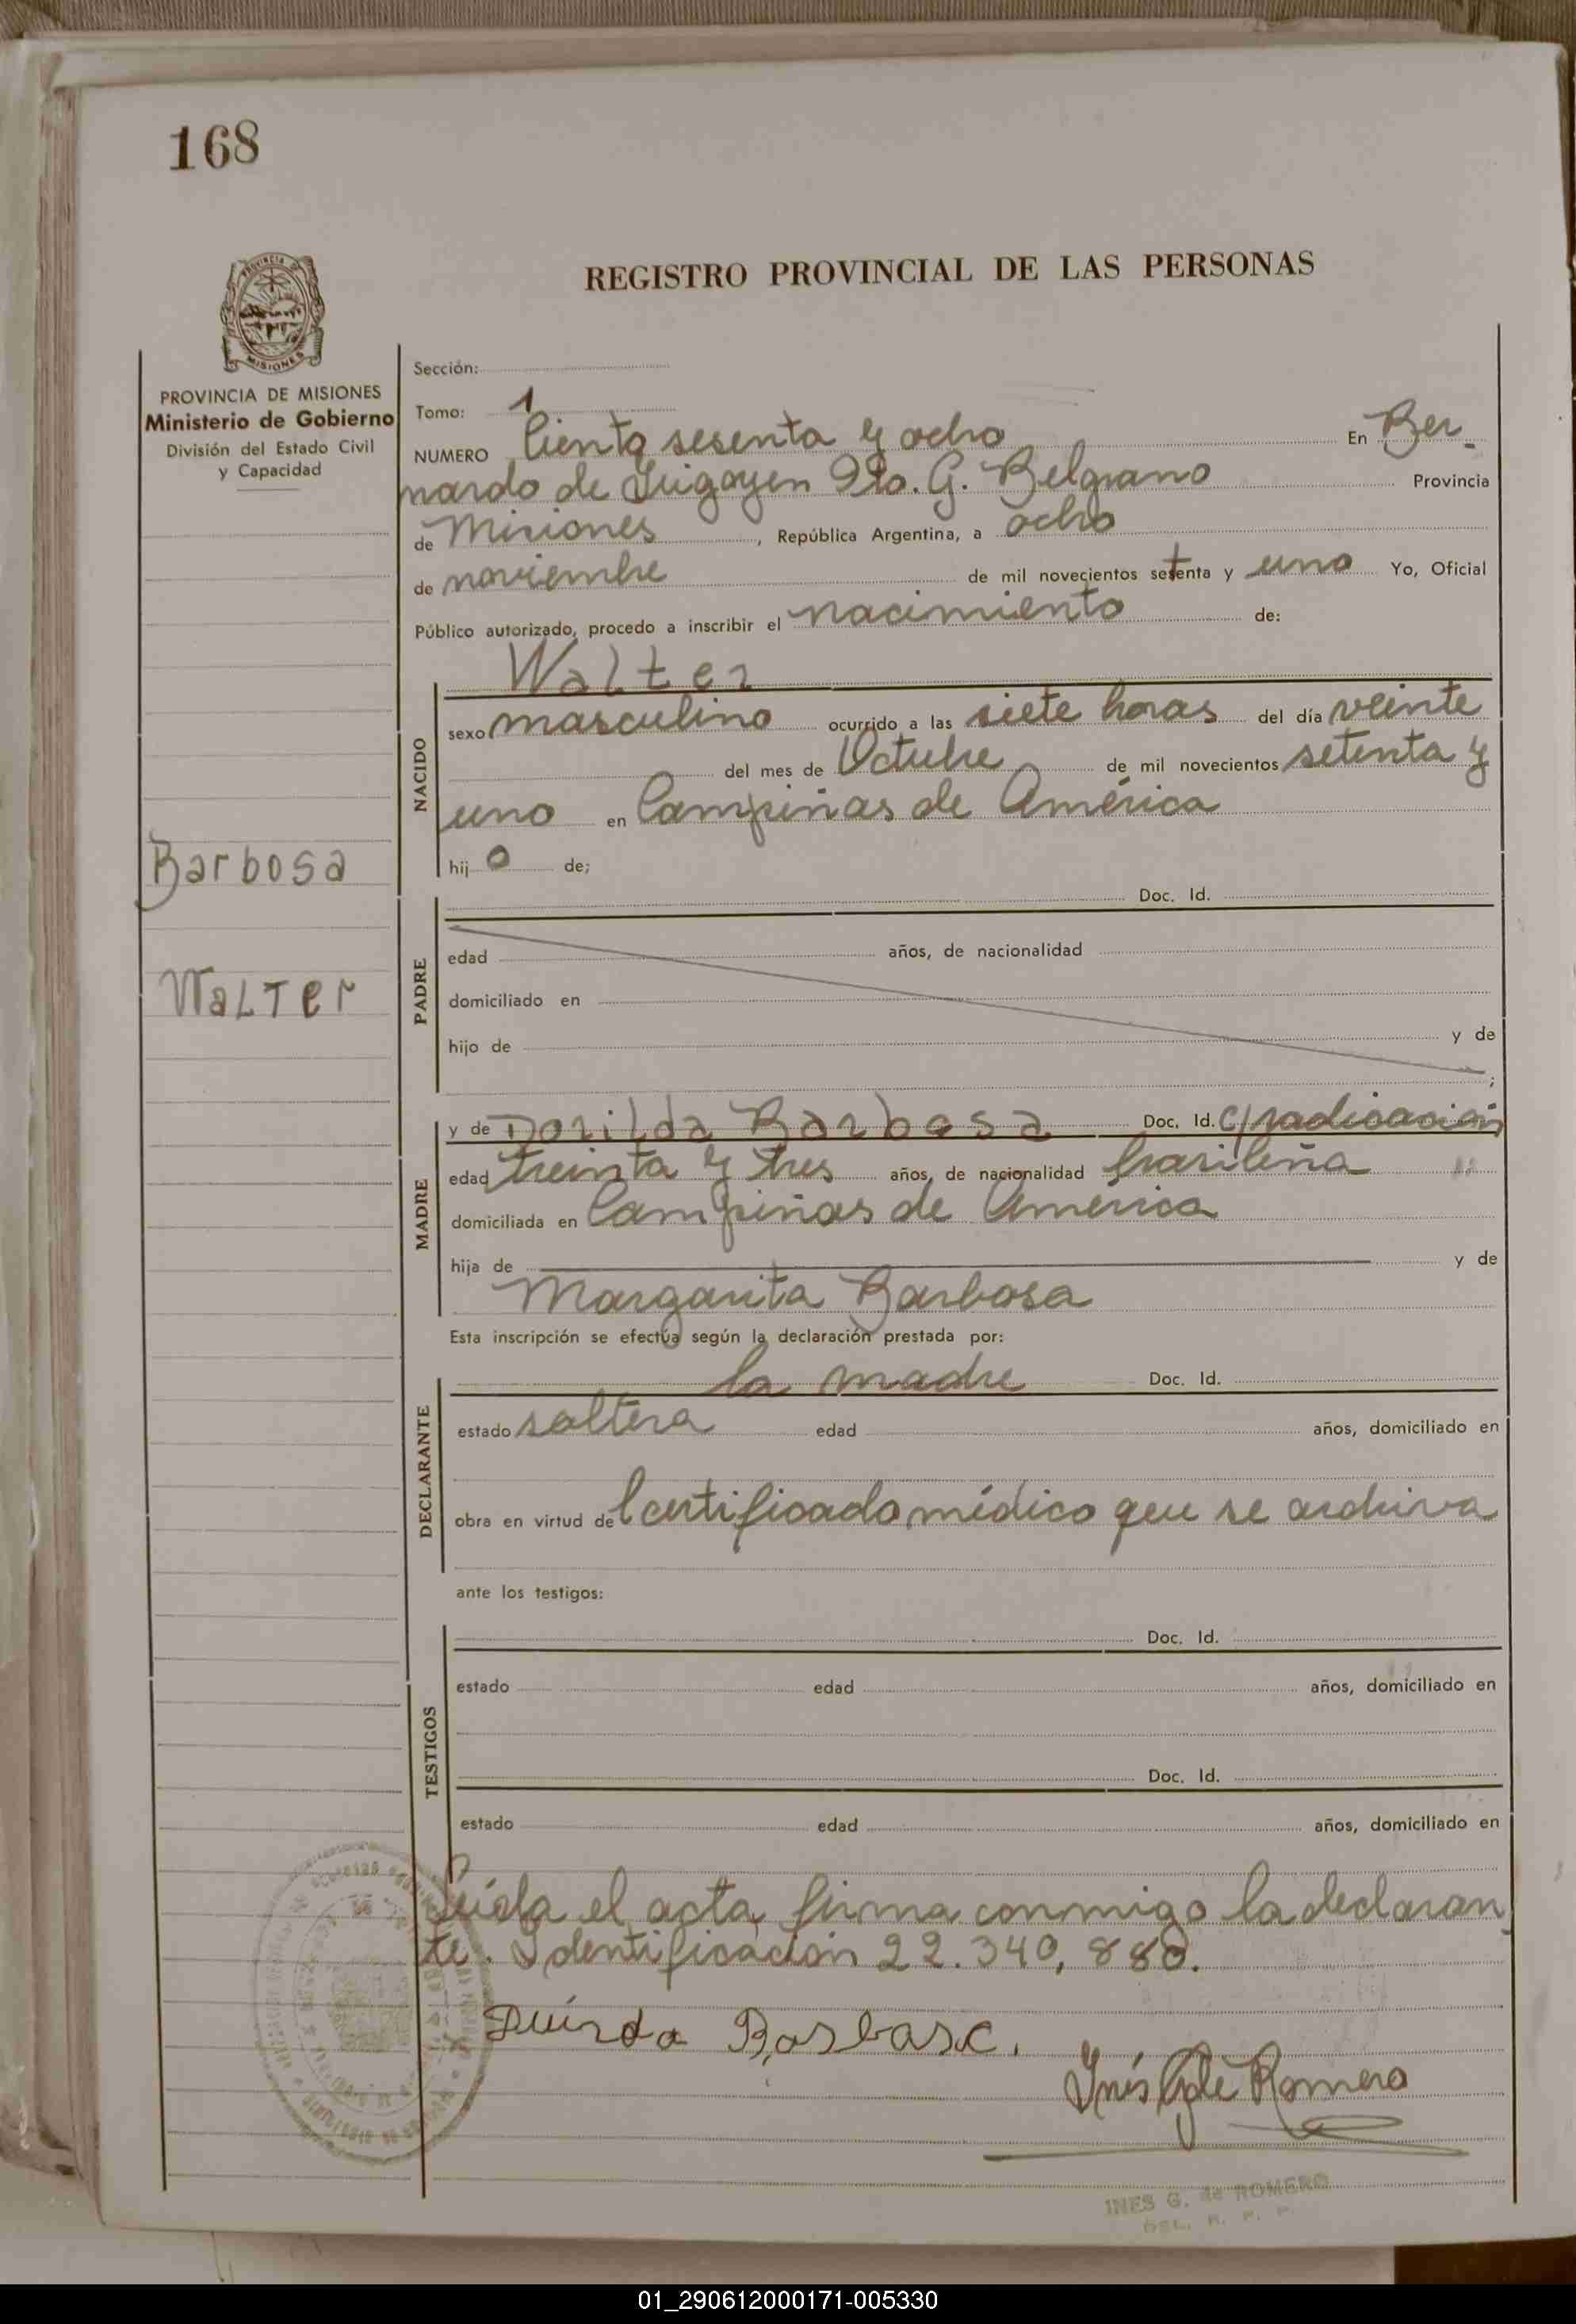 168
REGISTRO PROVINCIAL DE LAS PERSONAS
MISIONES
PROVINCIA DE MISIONES
Ministerio de Gobierno
División del Estado Civil
y Capacidad
Barbosa
Walter
Sección:
Tomo: 1
NUMERO Ciento sesenta y ocho En Ber-
nardo de Irigoyen Dto. G. Belgrano Provincia
de Misiones, República Argentina, a ocho
de noviembre de mil novecientos setenta y uno Yo, Oficial
Público autorizado, procedo a inscribir el nacimiento de:
NACIDO
Walter
sexo masculino ocurrido a las siete horas del día veinte
del mes de Octubre de mil novecientos setenta y
uno en Campiñas de América
hij o de;
PADRE
Doc. Id.
edad años, de nacionalidad
domiciliado en
hijo de y de
;
MADRE
y de Dorilda Barbosa Doc. Id. c/radicación
edad treinta y tres años, de nacionalidad brasileña
domiciliada en Campiñas de América
hija de y de
Margarita Barbosa
Esta inscripción se efectúa según la declaración prestada por:
DECLARANTE
la madre Doc. Id.
estado soltera edad años, domiciliado en
obra en virtud de certificado médico que se archiva
ante los testigos:
TESTIGOS
Doc. Id.
estado edad años, domiciliado en
Doc. Id.
estado edad años, domiciliado en
Leída el acta, firma conmigo la declaran
te. Identificación 22.340,880.
Barbasc.
Inés G de Romero
INES G. de ROMERO
DEL. R. P. P.
01_290612000171-005330